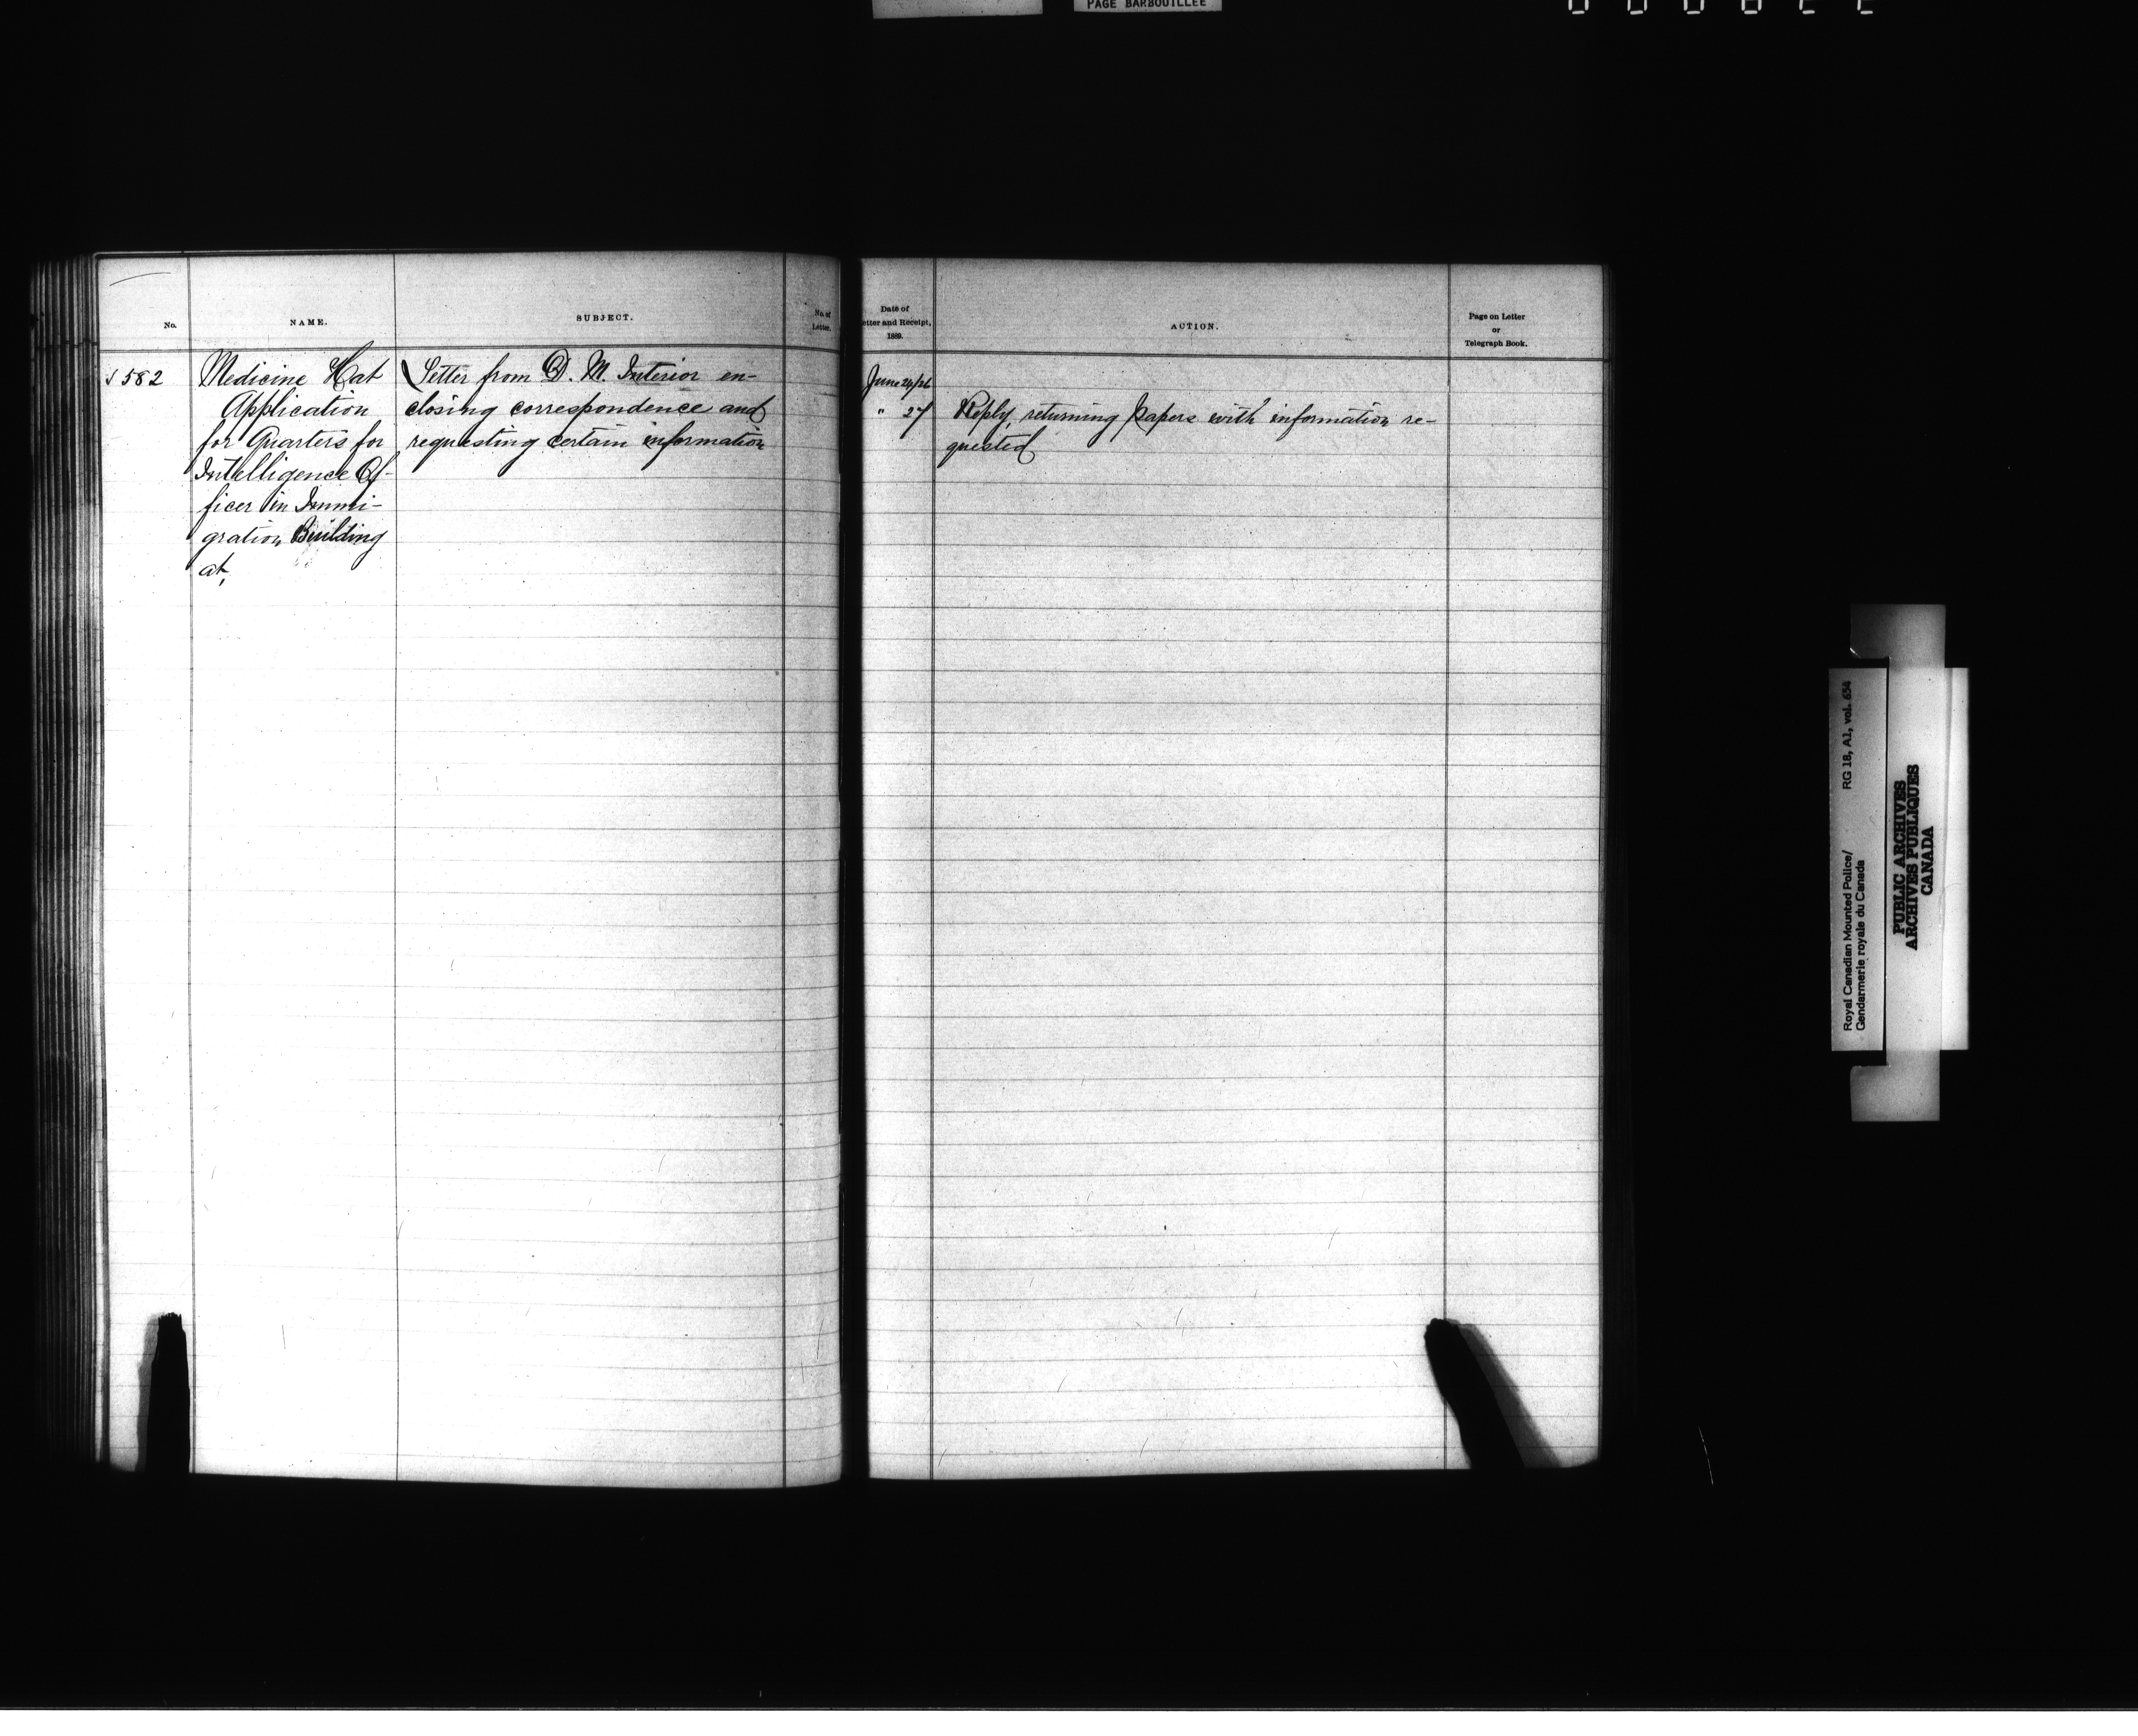 PAGE BARBOUILLEE
No.
NAME.
SUBJECT.
No. of
Letter.
582
Medicine Hat
Application
for Quarters for
Intelligence Of-
ficer in Immi-
gration Building
at,
Letter from D. M. Interior en-
closing correspondence and
requesting certain information
Date of
etter and Receipt,
1889.
ACTION.
Page on Letter
or
Telegraph Book.
June 24/26
" 27
Reply, returning papers with information re-
quested
Royal Canadian Mounted Police/ RG 18, A1, vol. 654
Gendarmerie royale du Canada
PUBLIC ARCHIVES
ARCHIVES PUBLIQUES
CANADA